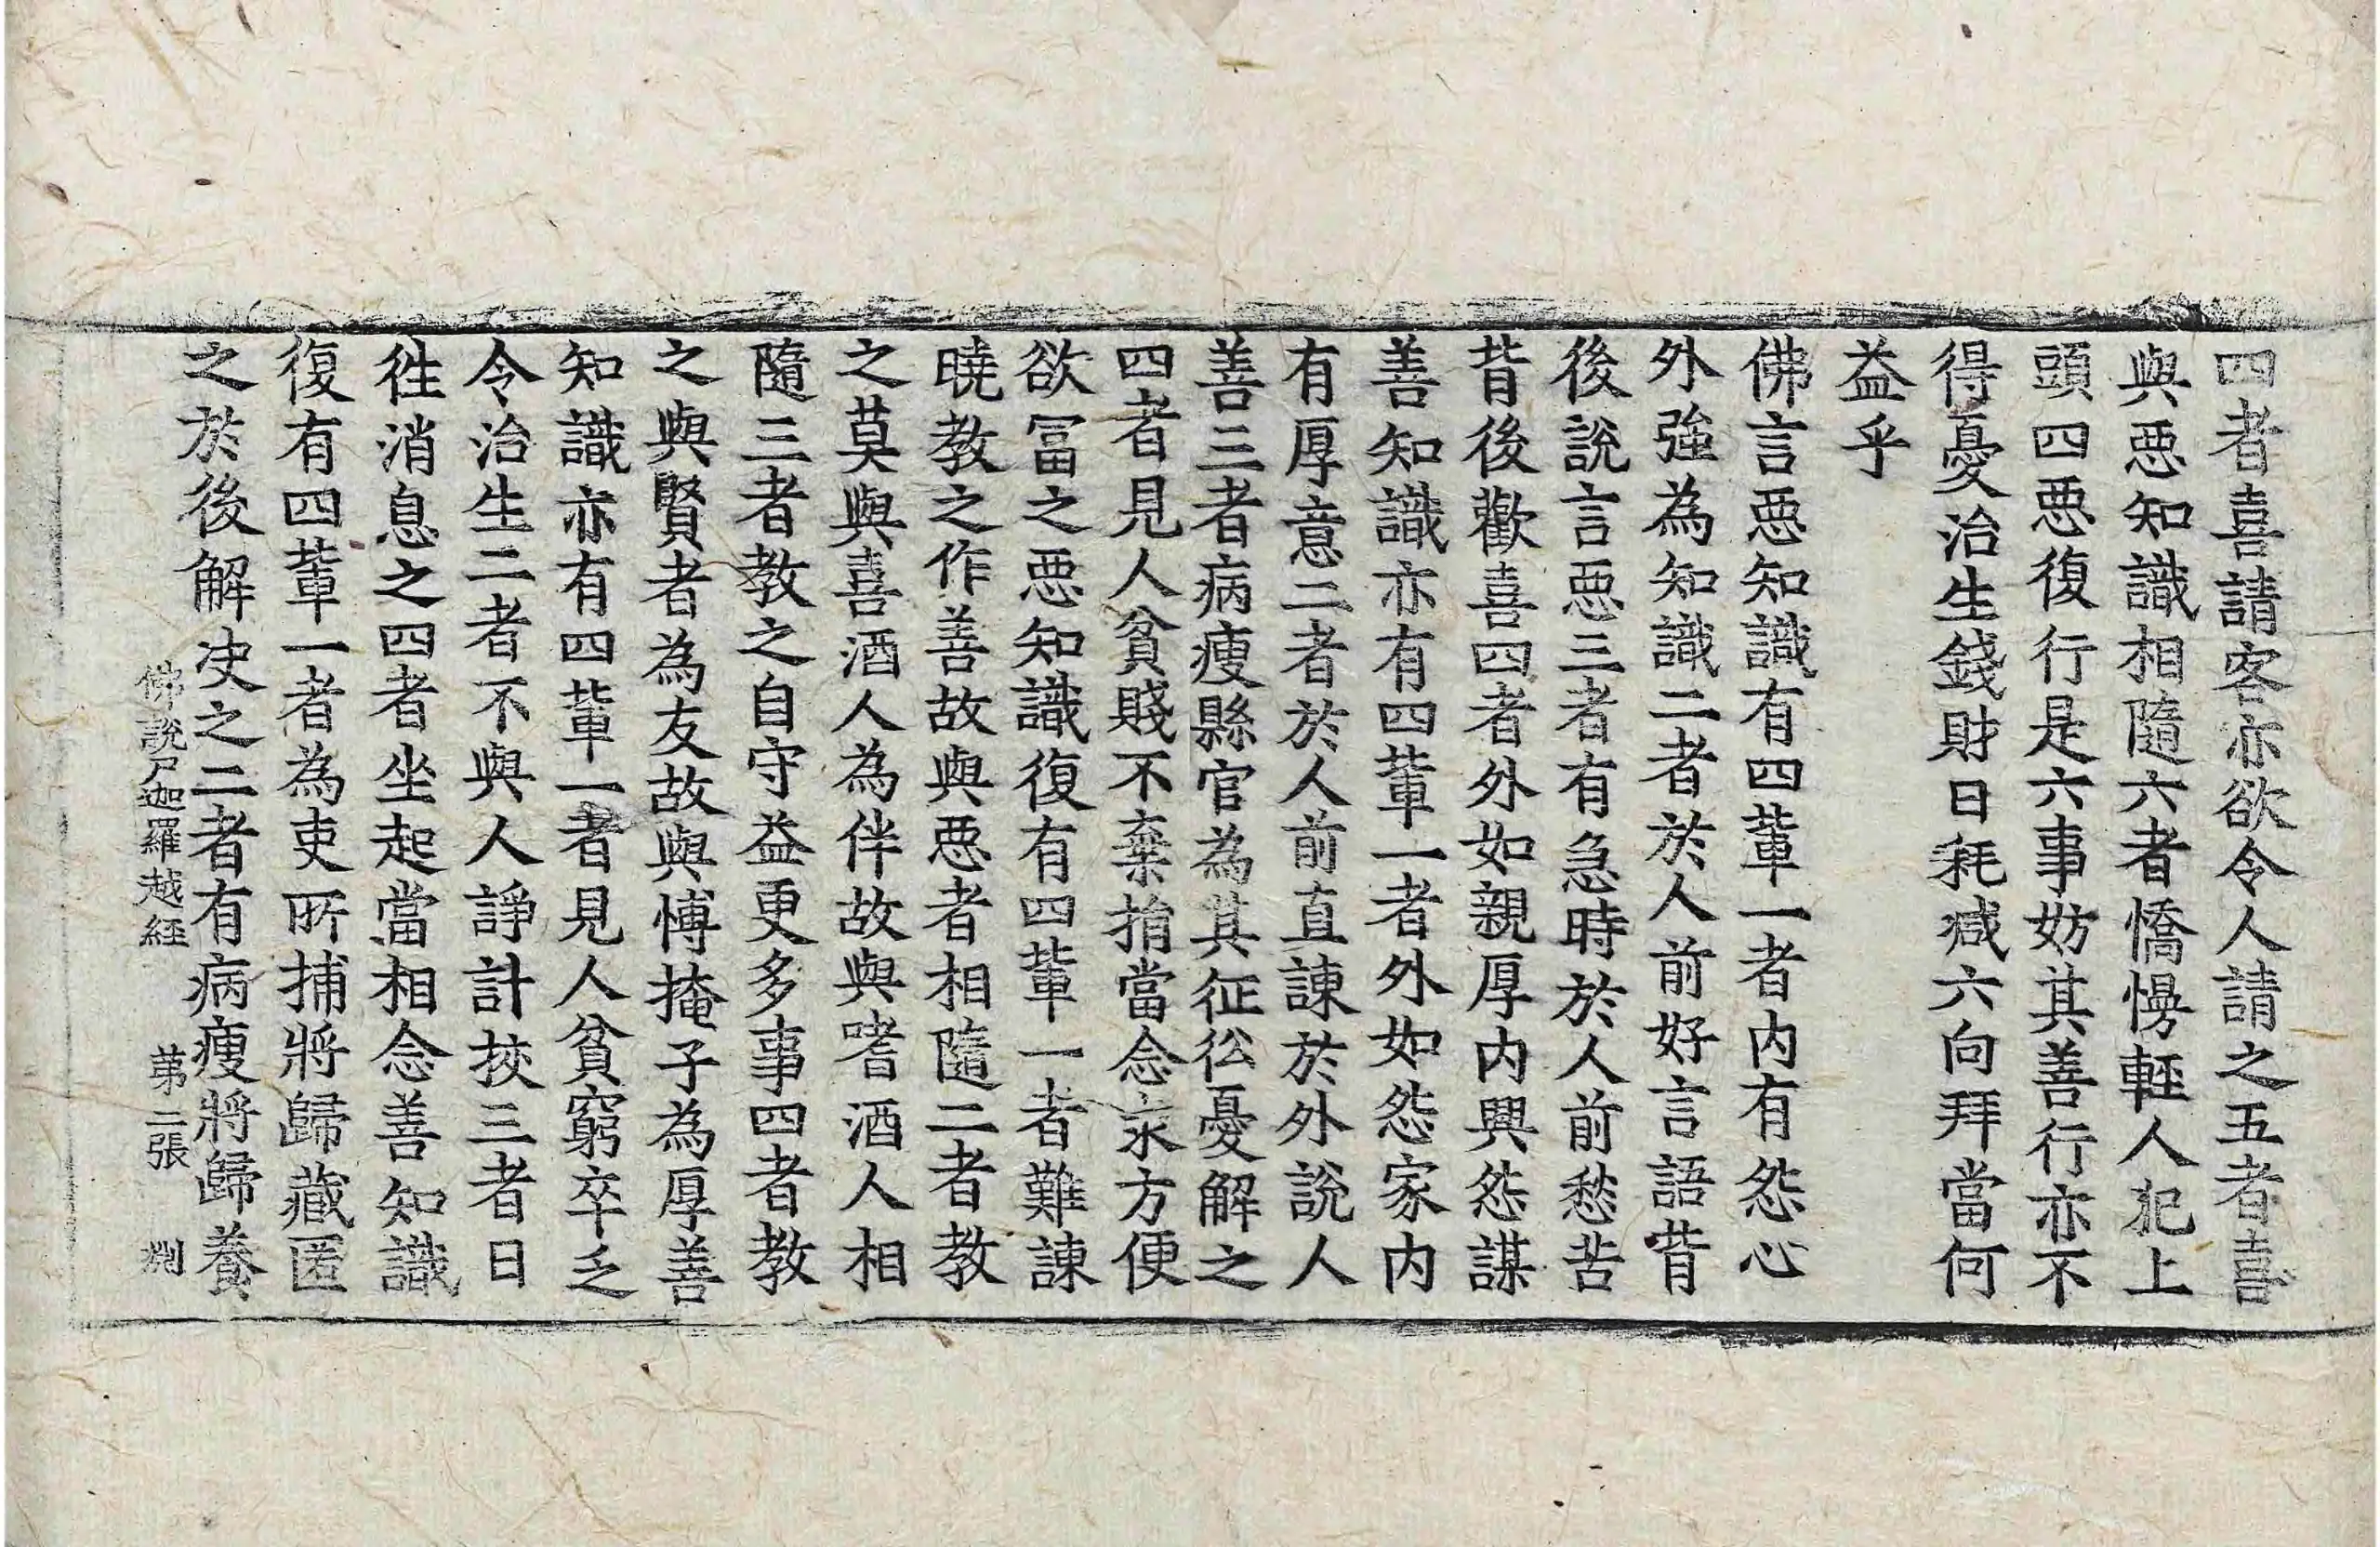 四者喜請客亦欲令人請之五者喜
與惡知識相隨六者憍慢輕人犯上
頭四惡復行是六事妨其善行亦不
得憂治生錢財日耗減六向拜當何
益乎
佛言惡知識有四輩一者內有怨心
外強為知識二者於人前好言語背
後說言惡三者有急時於人前愁苦
背後歡喜四者外如親厚內興怨謀
善知識亦有四輩一者外如怨家內
有厚意二者於人前直諫於外說人
善三者病瘦縣官為其征彸憂解之
四者見人貧賤不棄捐當念求方便
欲冨之惡知識復有四輩一者難諫
曉教之作善故與惡者相隨二者教
之莫與喜酒人為伴故與嗜酒人相
隨三者教之自守益更多事四者教
之與賢者為友故與博掩子為厚善
知識亦有四輩一者見人貧窮卒乏
令治生二者不與人諍計挍三者日
往消息之四者坐起當相念善知識
復有四輩一者為吏所捕將歸藏匿
之於後解決之二者有病瘦將歸養
佛說尸迦羅越經 第二張 剡